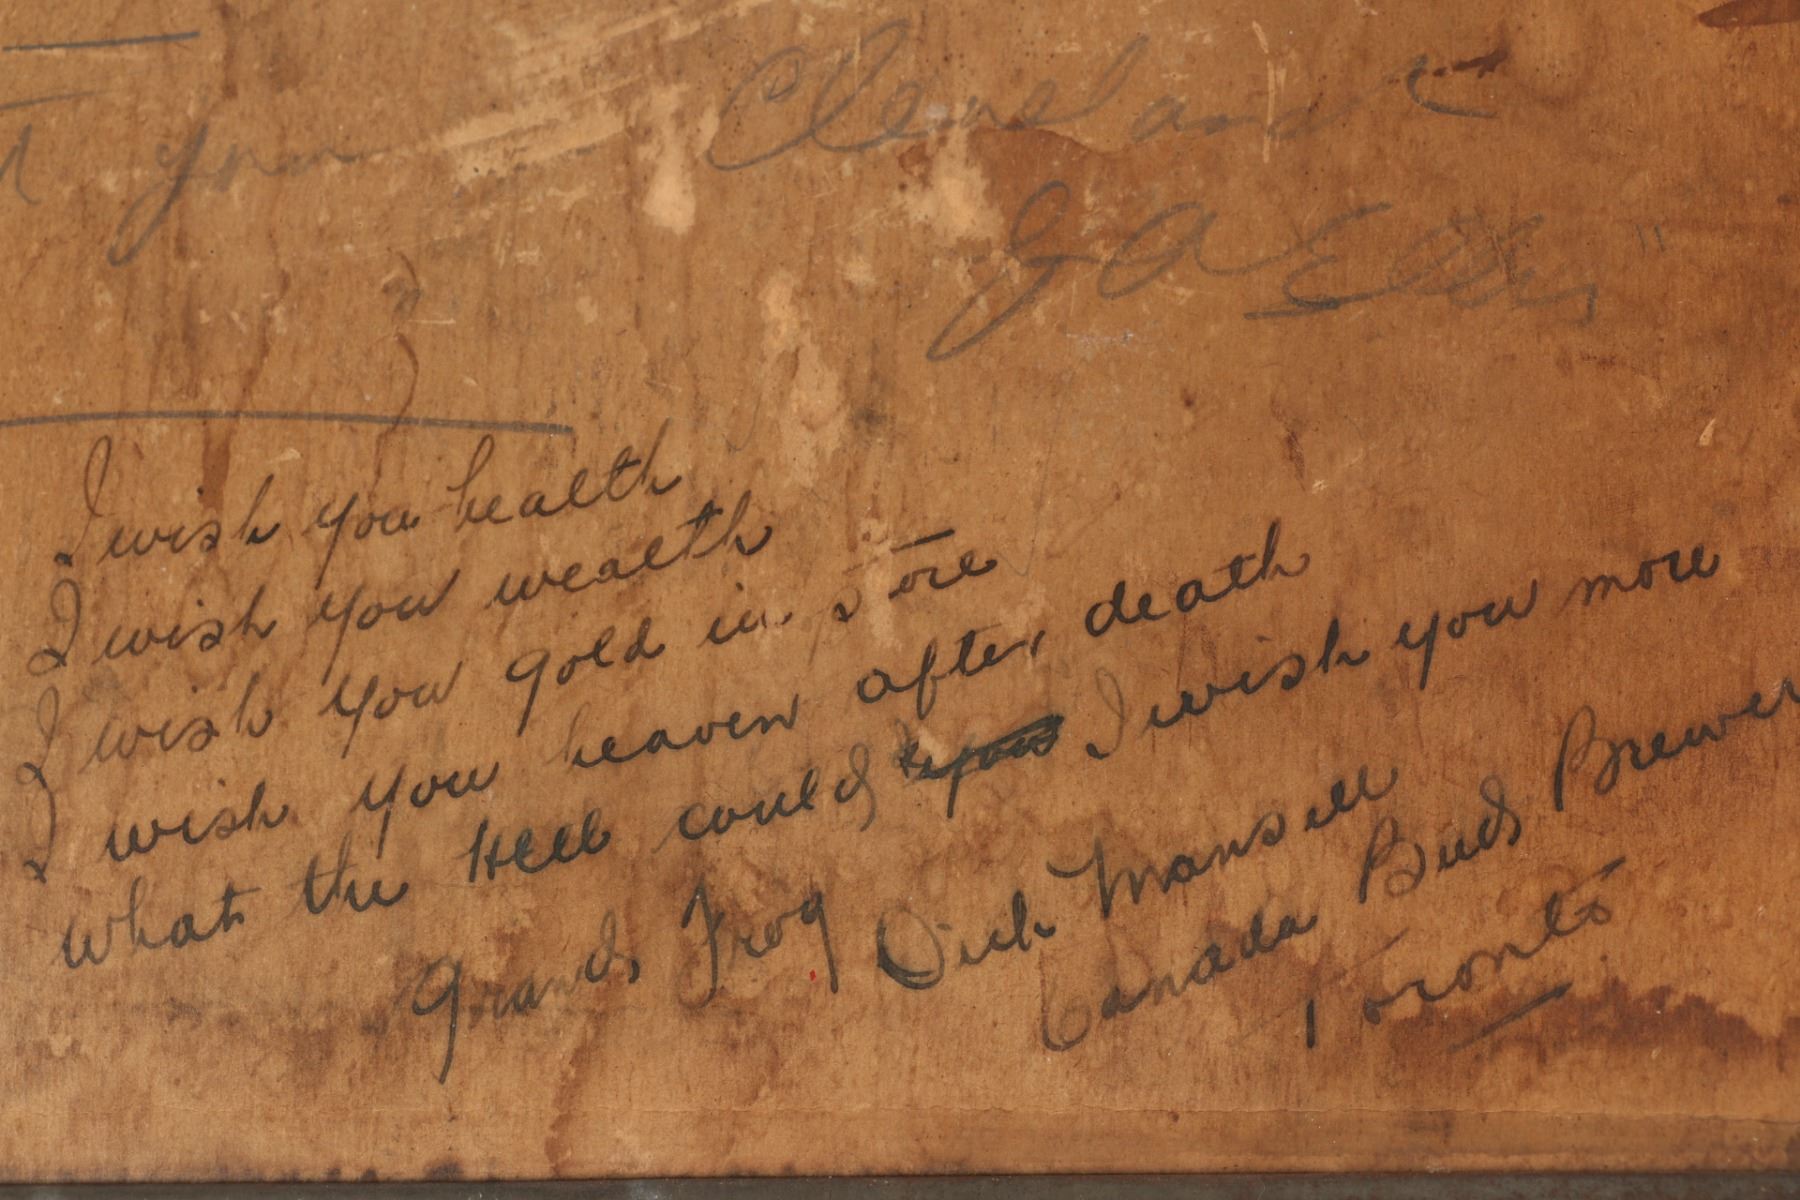 your Cleveland
J A Ellis "
I wish you health
I wish you wealth
I wish you gold in store
I wish you heaven after death
What the Hell could you I wish you more
Grand Frog Dick Mansell
Canada Buds Brewer
Toronto